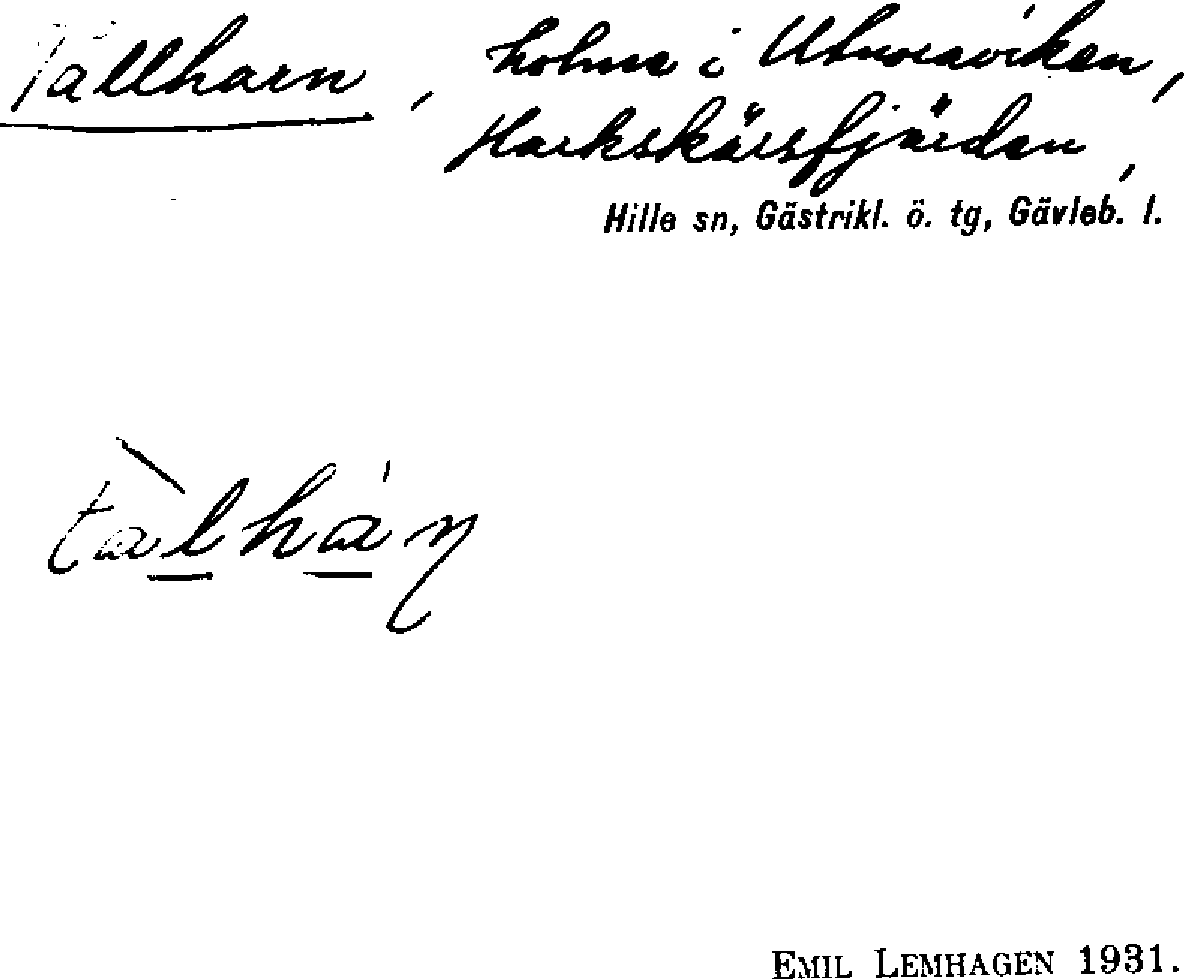 Tallharn, holme i Utnoraviken,
Harkskärsfjärden,
Hille sn, Gästrikl. ö. tg, Gävleb. l.
tàlhán
EMIL LEMHAGEN 1931.